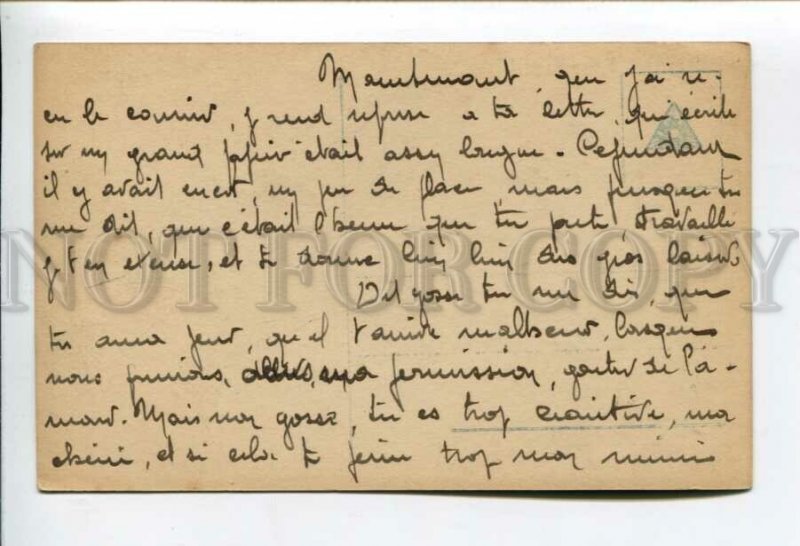 Maintenant, que j'ai re-
çu le courrier, je rend reponse a ta lettre, qui écrite
sur un grand papier était assez longue. Cependant
il y avait encore un peu de place, mais puisque tu
me dit, que c'était l'heure que tu parte travaille
je t'en excuse, et te donne bien bien des gros baisers
Dit gosse tu me dis, que
tu aura peur, qu'il t'arrive malheur, lorsque
nous pourrons, permission, gouter de l'a-
mour. Mais mon gosse, tu es trop craintive, ma
chérie, et si cela te trop mon mimi
NOT FOR COPY